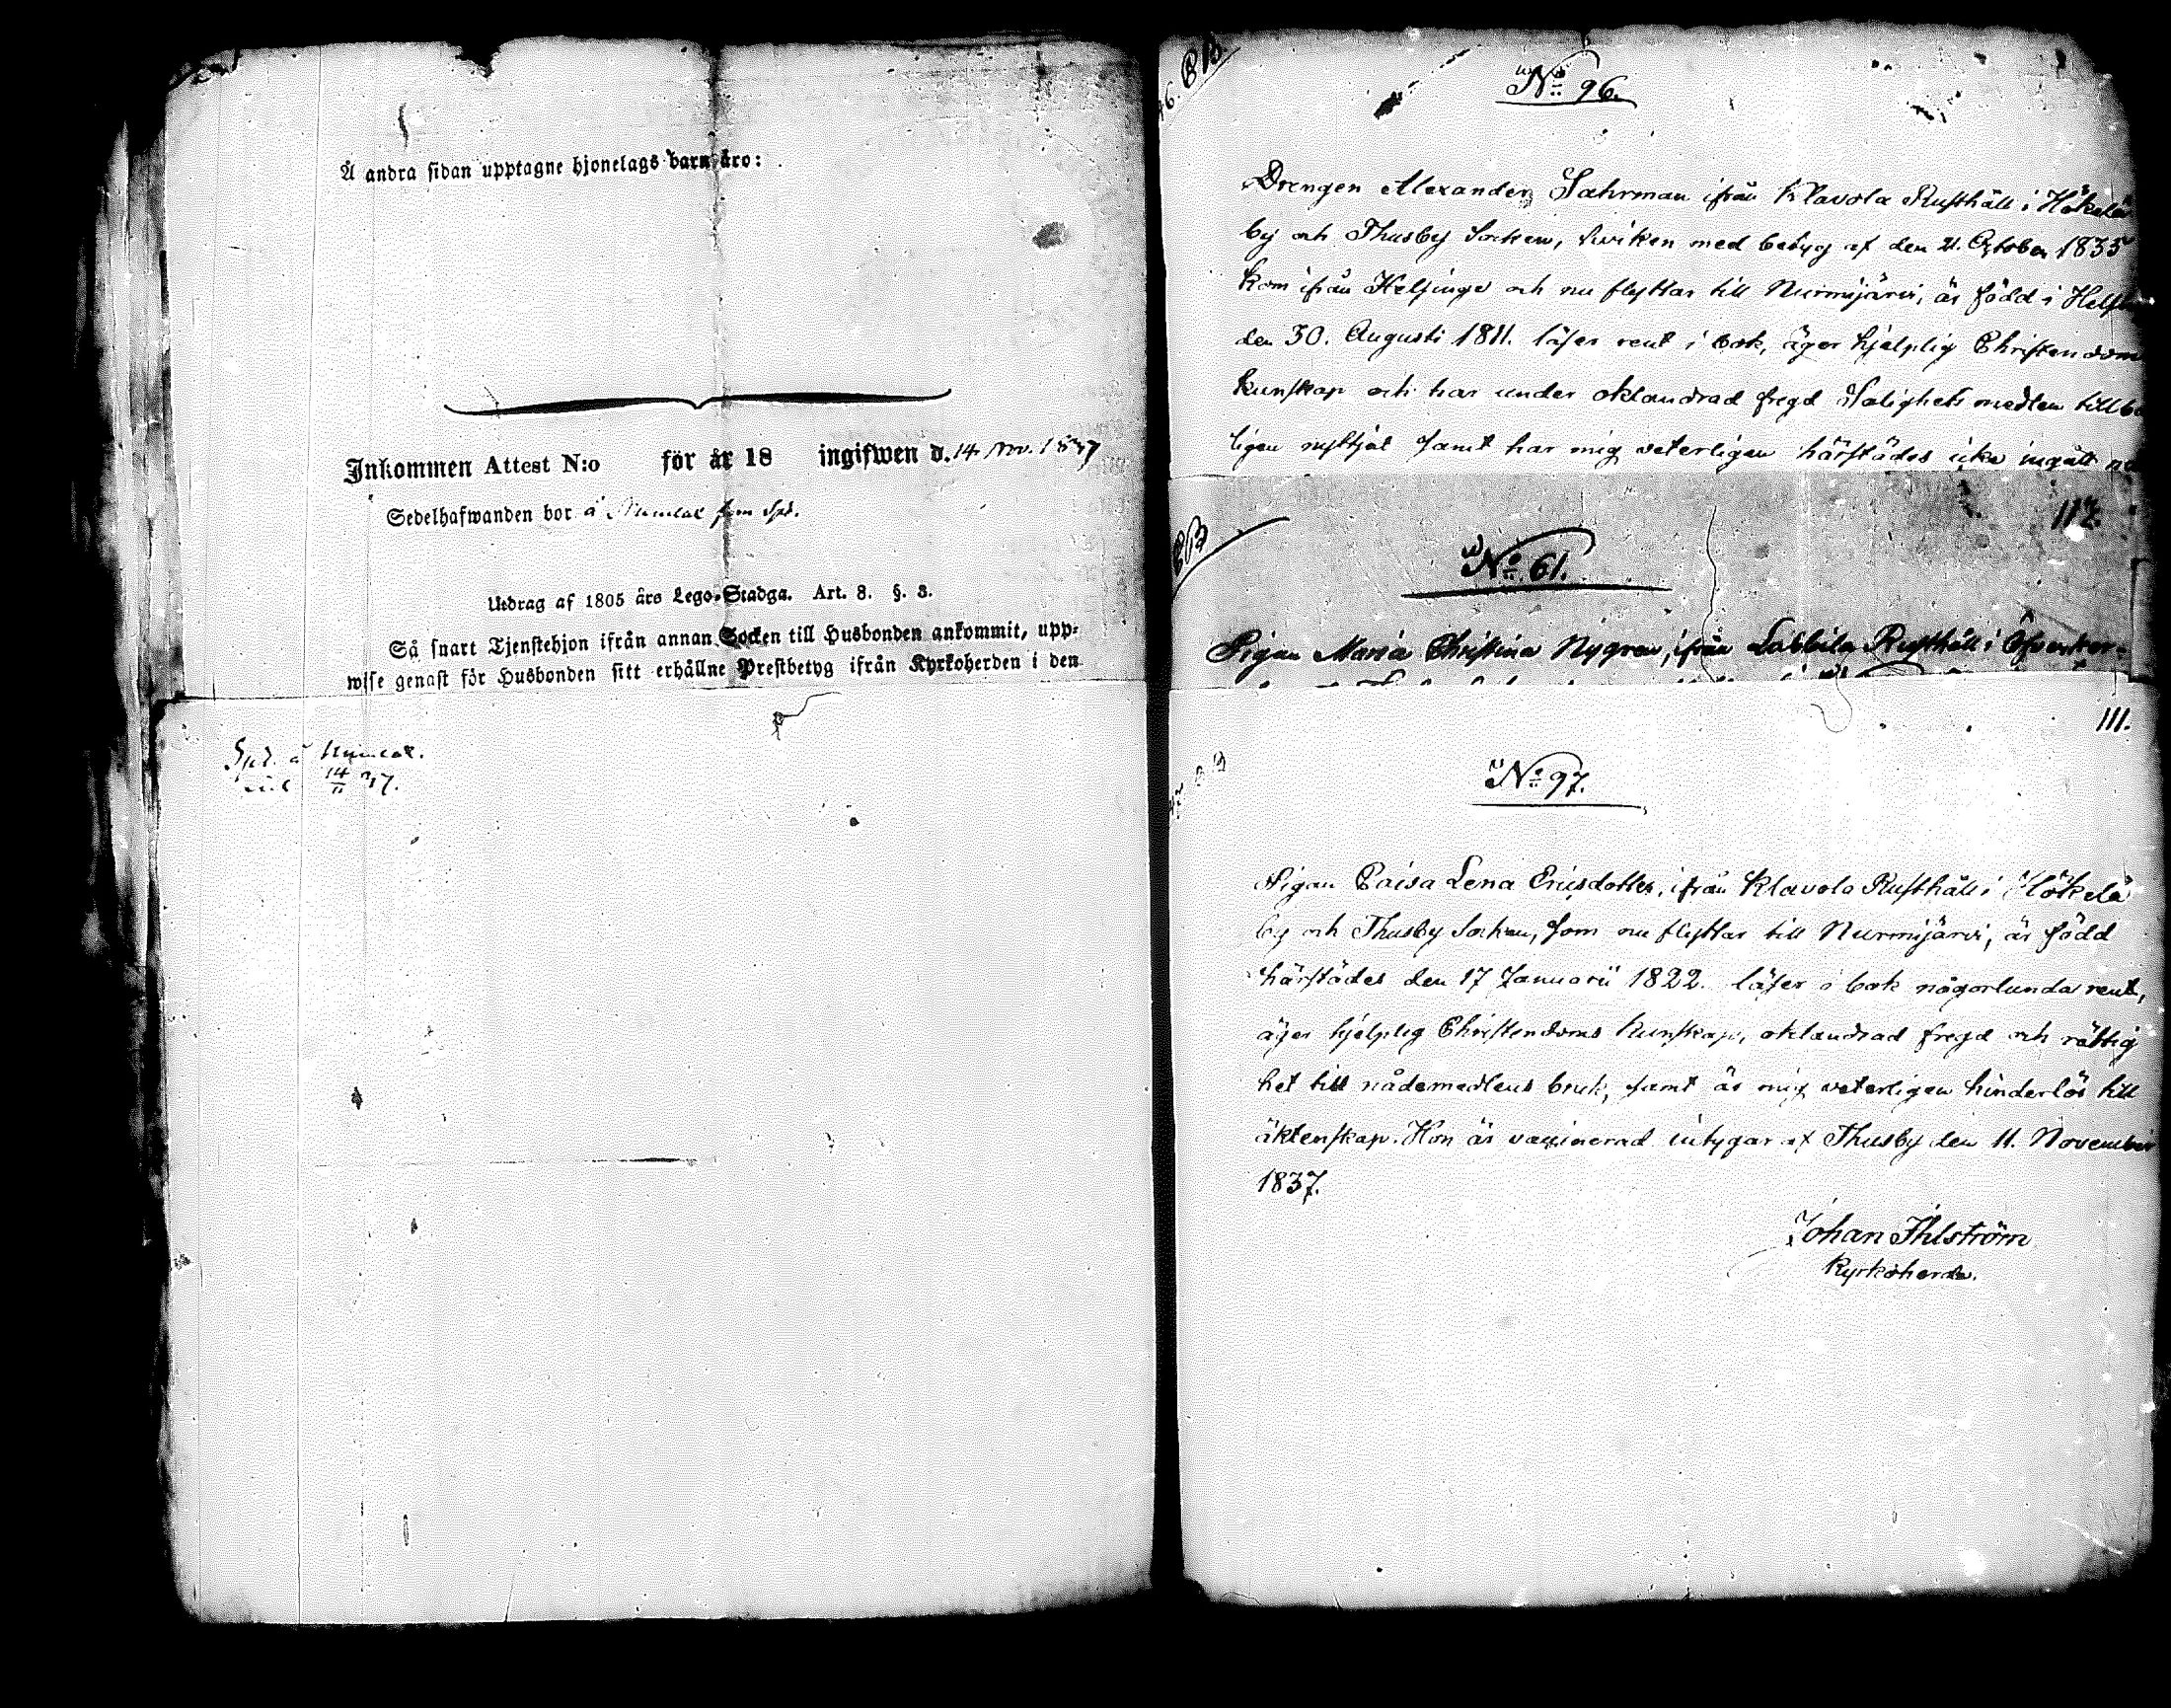 Å andra sidan upptagne hjonelags barn äro:
Inkommen Attest N:o för år 18 ingifwen d. 14 Nov. 1837
Sedelhafwanden bor å
Utdrag af 1805 års Lego-Stadga. Art. 8. §. 3.
Så snart Tjenstehjon ifrån annan Socken till Husbonden ankommit, upp-
wise genast för Husbonden sitt erhållne Prestbetyg ifrån Kyrkoherden i den
14/11 37.
No 96.
Drengen Alexander Sahrman ifrån Klavola Rusthåll i Hökelä
by och Thusby Socken, hwilken med betyg af den 21. October 1835
kom ifrån Helsinge och nu flyttar till Nurmijärvi, är född i
den 30. Augusti 1811. läser rent i bok, äger hjelplig Christendoms
kunskap och har under oklandrad fregd Salighets medlen
ligen nyttjat samt har mig veterligen härstädes icke ingått
117.
No 61.
Pigan Maria Christina Nygren, ifrån Labbila Rusthåll i
111.
No 97.
Pigan Caisa Lena Ericsdotter, ifrån Klavola Rusthåll i Hökelä
by och Thusby Socken, som nu flyttar till Nurmijärvi, är född
härstädes den 17 Januarii 1822. läser i bok någorlunda rent,
äger hjelplig Christendoms kunskap, oklandrad fregd och rättig
het till nådemedlens bruk, samt är mig veterligen hinderlös till
äktenskap. Hon är vaccinerad intygar af Thusby den 11. November
1837.
Johan Ihlström
Kyrkoherde.